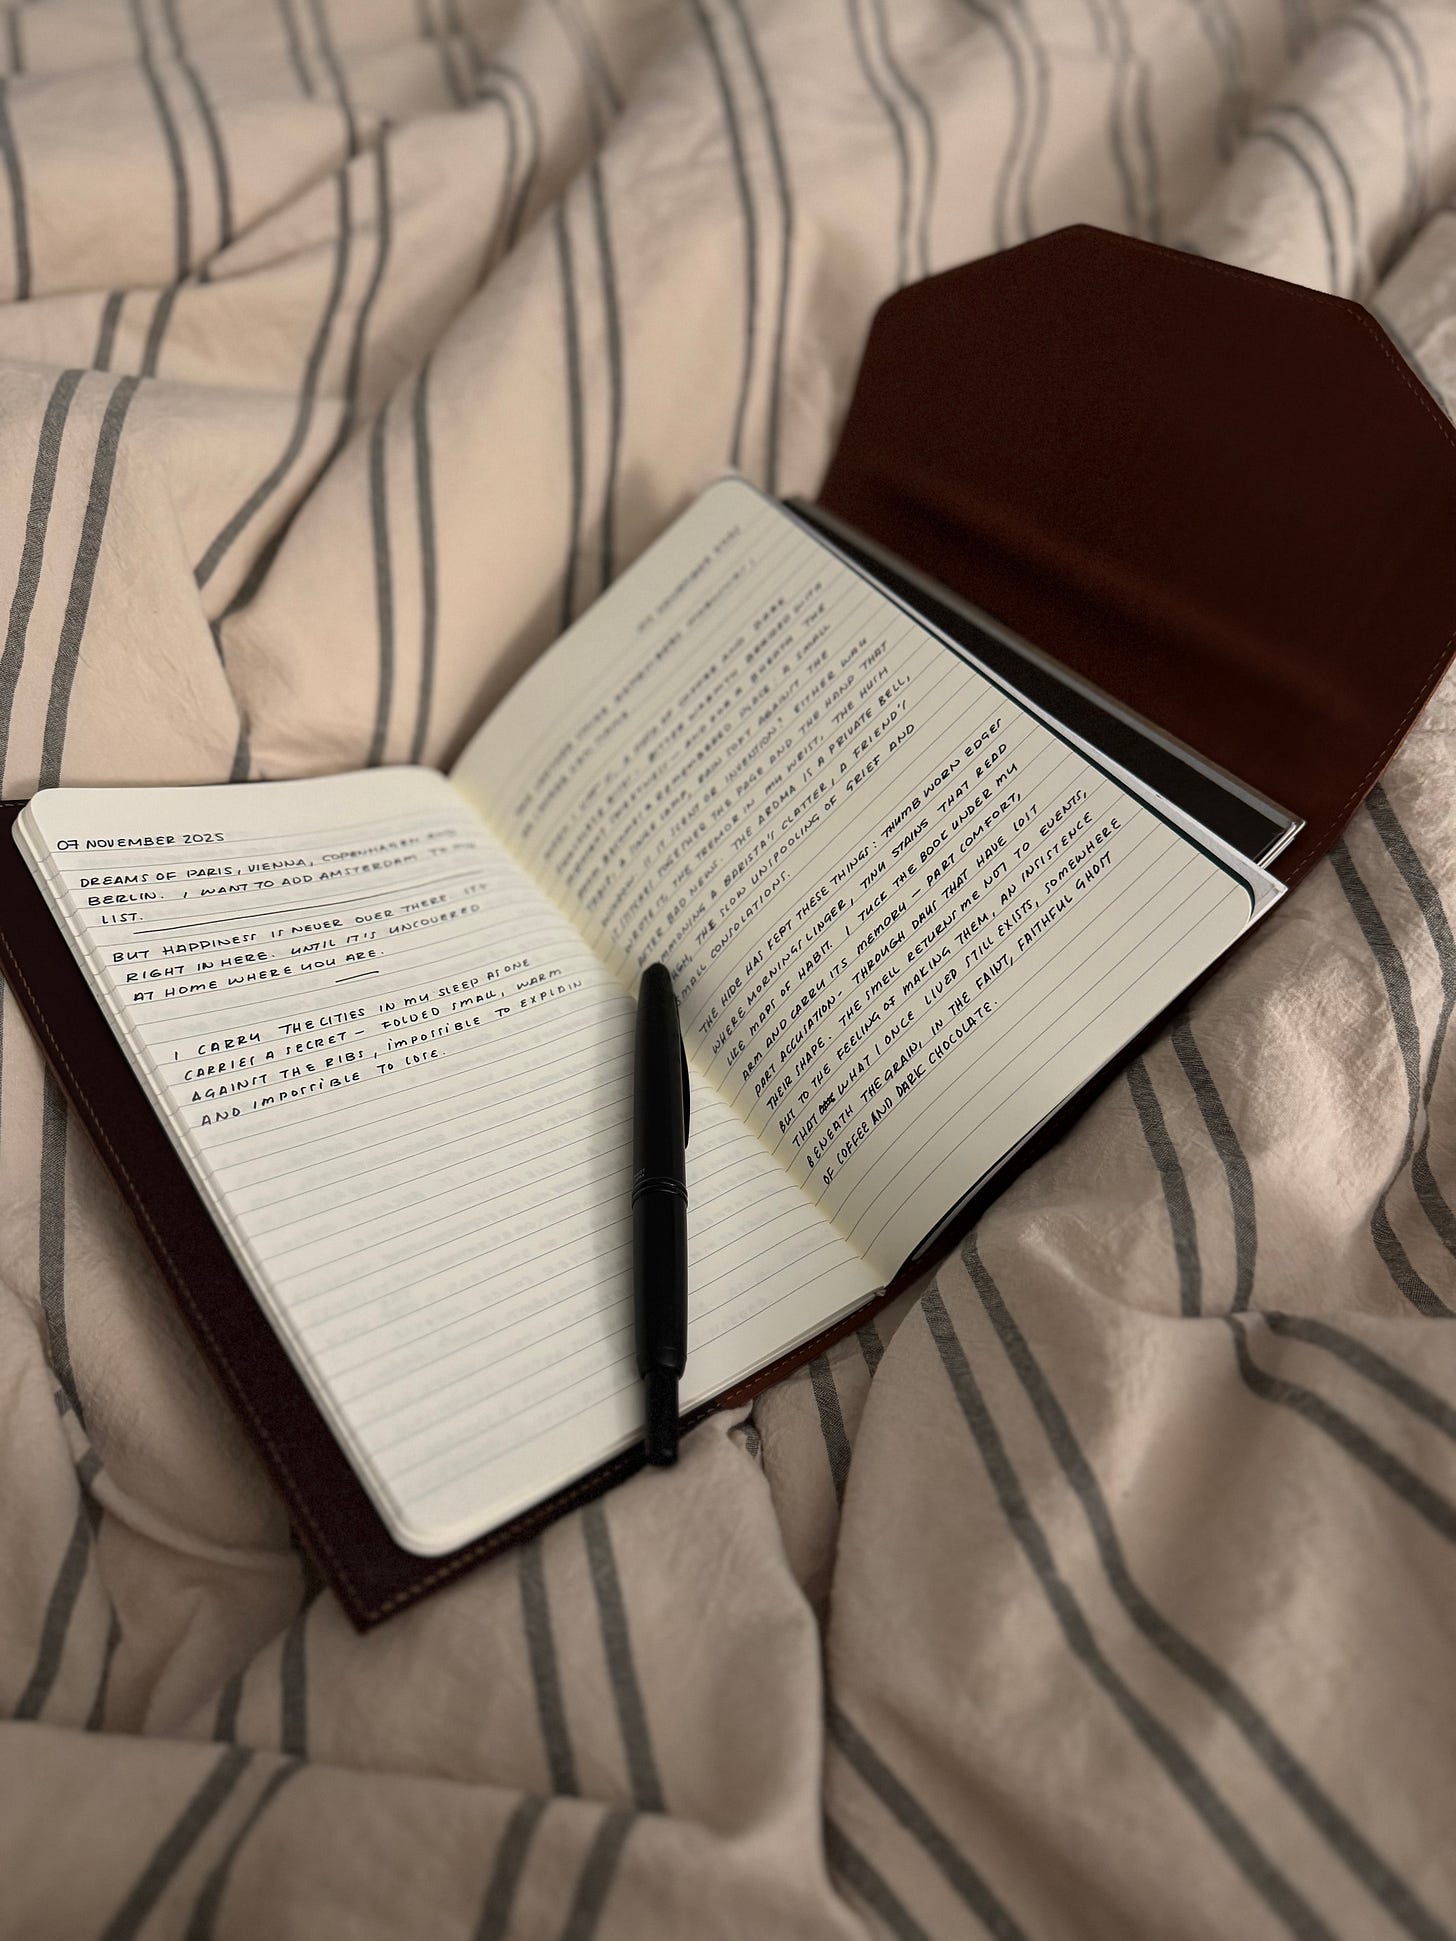 07 NOVEMBER 2025
DREAMS OF PARIS, VIENNA, COPENHAGEN AND
BERLIN. I WANT TO ADD AMSTERDAM TO MY
LIST.
BUT HAPPINESS IS NEVER OVER THERE.
RIGHT IN HERE. UNTIL IT'S UNCOVERED
AT HOME WHERE YOU ARE.
I CARRY THE CITIES IN MY SLEEP AS ONE
CARRIES A SECRET — FOLDED SMALL, WARM
AGAINST THE RIBS, IMPOSSIBLE TO EXPLAIN
AND IMPOSSIBLE TO LOSE.
OF COFFEE AND DARK
BITTER WARMTH
REMEMBERED PLACE. A SMALL
LAMP, RAIN SOFT AGAINST THE
IS IT SCENT OR INVENTION? EITHER WAY
TOGETHER THE PAGE AND THE HAND THAT
WROTE IT, THE TREMOR IN MY WRIST, THE HUSH
AFTER BAD NEWS. THE AROMA IS A PRIVATE BELL,
A BARISTA'S CLATTER, A FRIEND'S
THE SLOW UNSPOOLING OF GRIEF AND
SMALL CONSOLATIONS.
THE HIDE HAS KEPT THESE THINGS: THUMB WORN EDGES
WHERE MORNINGS LINGER, TINY STAINS THAT READ
LIKE MAPS OF HABIT. I TUCK THE BOOK UNDER MY
ARM AND CARRY ITS MEMORY — PART COMFORT,
PART ACCUSATION - THROUGH DAYS THAT HAVE LOST
THEIR SHAPE. THE SMELL RETURNS ME NOT TO EVENTS,
BUT TO THE FEELING OF MAKING THEM, AN INSISTENCE
THAT WHAT I ONCE LIVED STILL EXISTS, SOMEWHERE
BENEATH THE GRAIN, IN THE FAINT, FAITHFUL GHOST
OF COFFEE AND DARK CHOCOLATE.